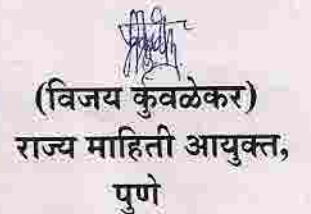 (विजय कुवळेकर)
राज्य माहिती आयुक्त,
पुणे